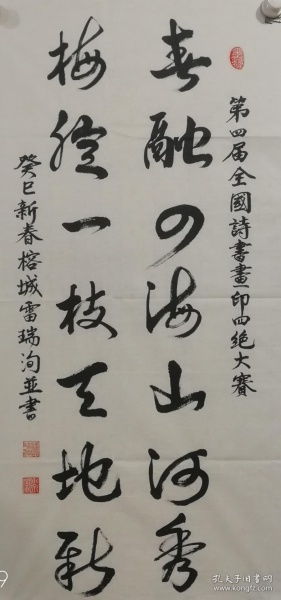 第四届全國詩書畫印四絕大賽
春融四海山河秀
梅綻一枝天地新
癸巳新春榕城雷瑞洵並書
孔夫子旧书网
www.kongfz.com
9